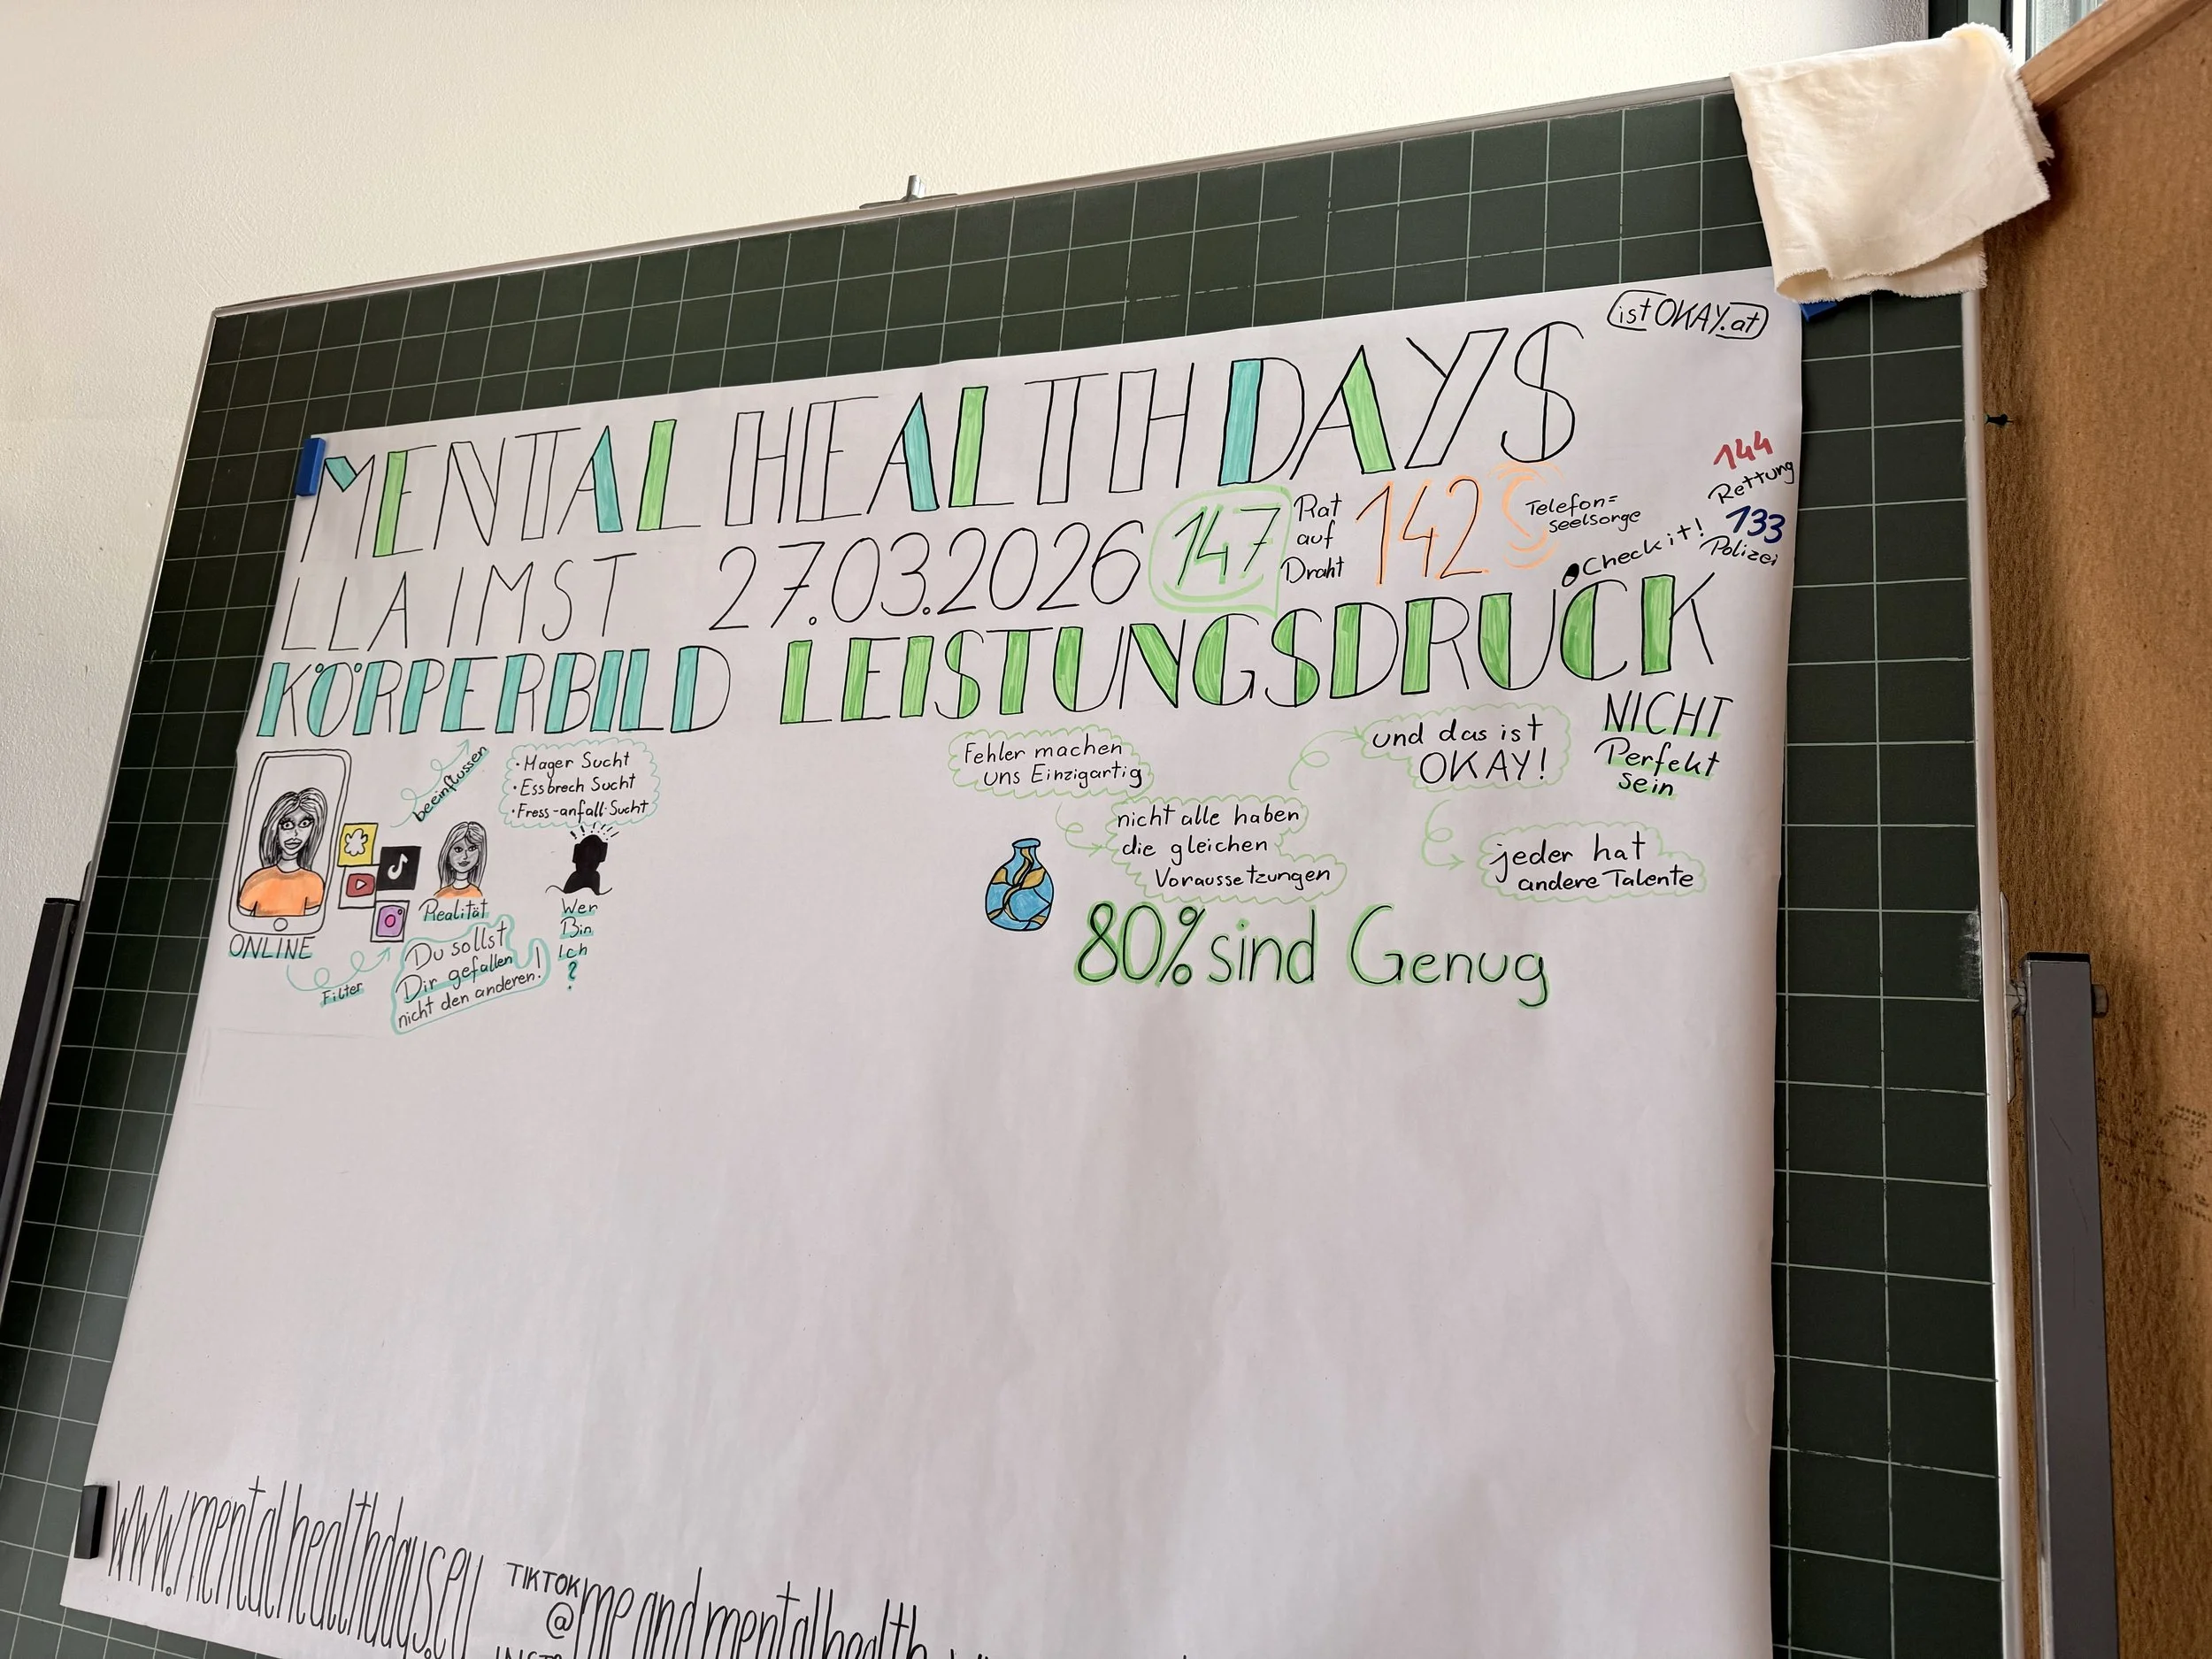 istOKAY.at
MENTAL HEALTH DAYS
LLA IMST 27.03.2026
147 Rat
auf
Draht
142 Telefon=
seelsorge
144
Rettung
133
Polizei
Check it!
KÖRPERBILD
LEISTUNGSDRUCK
beeinflussen
· Mager Sucht
· Essbrech Sucht
· Fress-anfall-Sucht
ONLINE
Filter
Realität
Du sollst
Dir gefallen
nicht den anderen!
Wer
Bin
Ich
?
Fehler machen
uns Einzigartig
nicht alle haben
die gleichen
Voraussetzungen
und das ist
OKAY!
jeder hat
andere Talente
NICHT
Perfekt
sein
80% sind Genug
www.mentalhealthdays.eu
TIKTOK
@meandmentalhealth